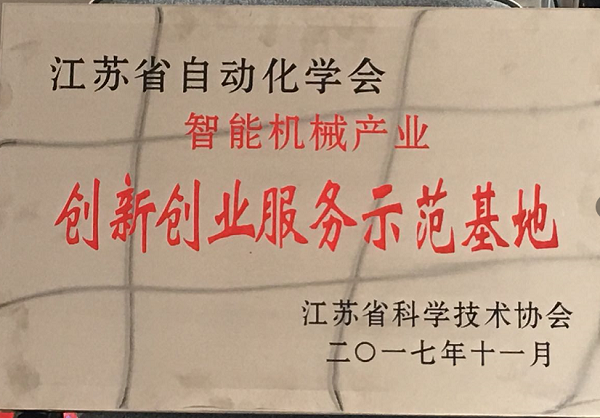 江苏省自动化学会
智能机械产业
创新创业服务示范基地
江苏省科学技术协会
二〇一七年十一月